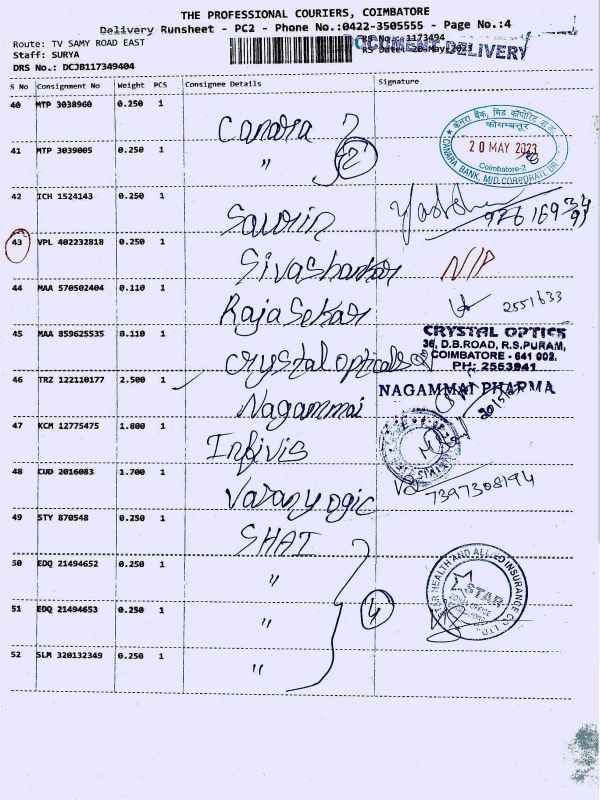 THE PROFESSIONAL COURIERS, COIMBATORE
Delivery Runsheet - PC2 - Phone No.:0422-3505555 - Page No.:4
Route: TV SAMY ROAD EAST
Staff: SURYA
DRS No.: DCJB117349404
RS No.: 1173494
RS Date: 20-May-2023
DOCUMENT DELIVERY
S No Consignment No Weight PCS Consignee Details Signature
40 MTP 3038960 0.250 1 Canara
41 MTP 3039005 0.250 1 " 2
केनरा बैंक, मिड कॉर्पोरेट
कोयम्बत्तूर
20 MAY 2023
Coimbatore-2
CANARA BANK, MID.CORPORATE BR
42 ICH 1524143 0.250 1 Saurin
43 VPL 402232818 0.250 1 Sivashankar N/P
44 MAA 570502404 0.110 1 RajaSekar 2551633
45 MAA 859625535 0.110 1 Crystal opticals
CRYSTAL OPTICS
36, D.B.ROAD, R.S.PURAM,
COIMBATORE - 641 002.
PH: 2553941
46 TRZ 122110177 2.500 1 Nagammai
NAGAMMAI PHARMA
47 KCM 12775475 1.800 1 Infivis
48 CUD 2016083 1.700 1
7397308194
49 STY 870548 0.250 1 SHAI
50 EDQ 21494652 0.250 1 "
51 EDQ 21494653 0.250 1 " 4
52 SLM 320132349 0.250 1 "
STAR HEALTH AND ALLIED INSURANCE CO. LTD.
STAR
ZONAL OFFICE